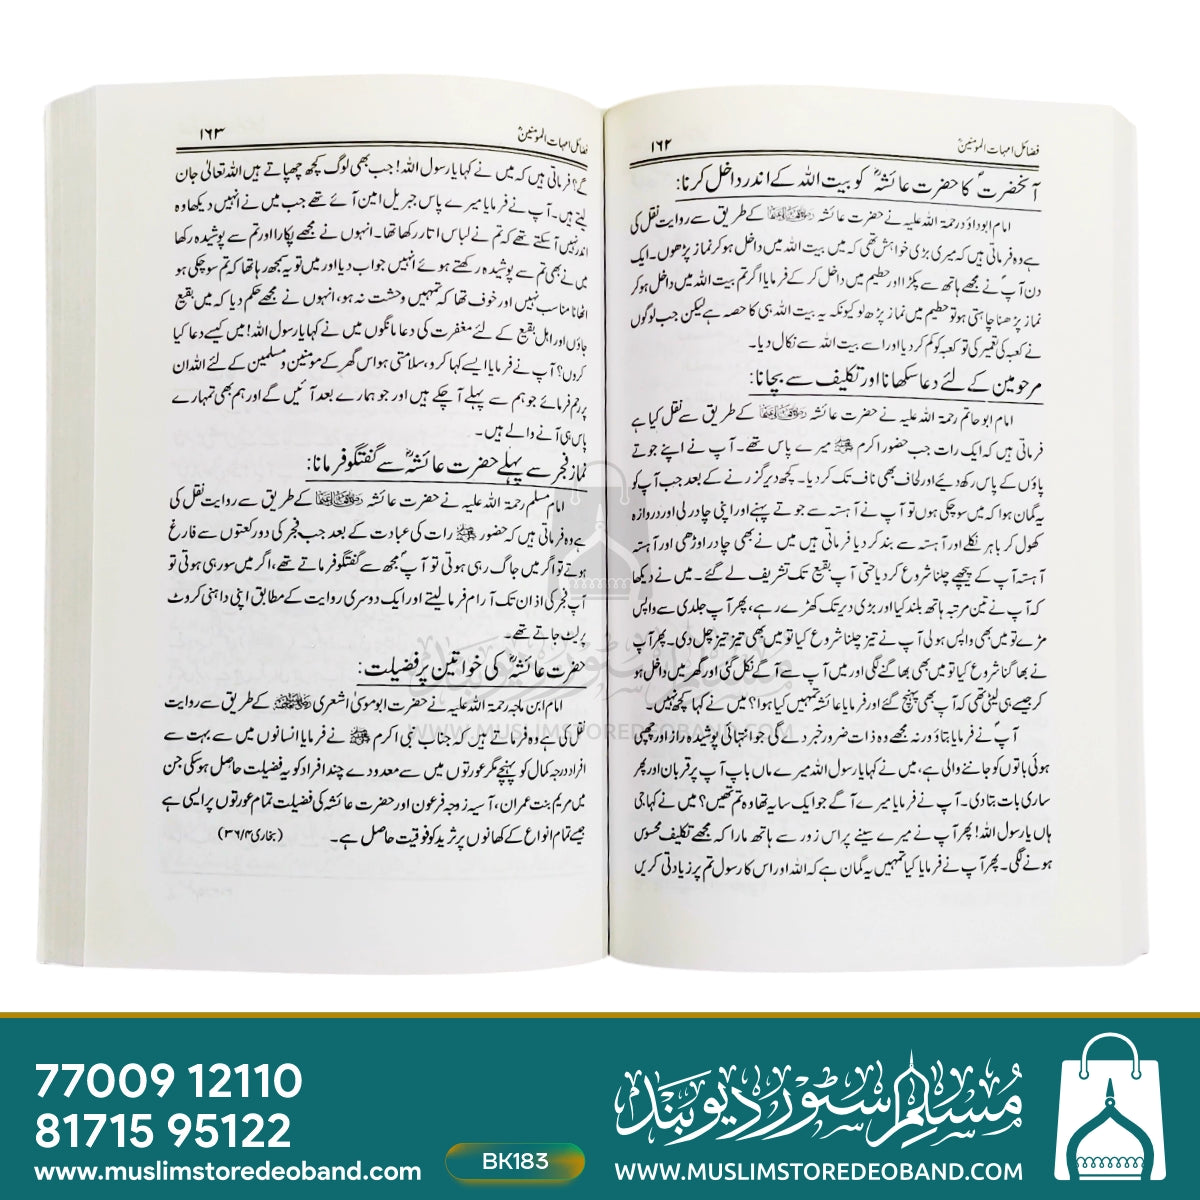 فضائل امہات المؤمنینؓ
۱۶۲
آنحضرتؐ کا حضرت عائشہؓ کو بیت اللہ کے اندر داخل کرنا:
امام ابوداؤد رحمۃ اللہ علیہ نے حضرت عائشہ رضی اللہ عنہا کے طریق سے روایت نقل کی
ہے وہ فرماتی ہیں کہ میری بڑی خواہش تھی کہ میں بیت اللہ میں داخل ہو کر نماز پڑھوں۔ ایک
دن آپؐ نے مجھے ہاتھ سے پکڑا اور حطیم میں داخل کر کے فرمایا اگر تم بیت اللہ میں داخل ہو کر
نماز پڑھنا چاہتی ہو تو حطیم میں نماز پڑھ لو کیونکہ یہ بیت اللہ ہی کا حصہ ہے لیکن جب لوگوں
نے کعبہ کی تعمیر کی تو کعبہ کو کم کر دیا اور اسے بیت اللہ سے نکال دیا۔
مرحومین کے لئے دعا سکھانا اور تکلیف سے بچانا:
امام ابوحاتم رحمۃ اللہ علیہ نے حضرت عائشہ رضی اللہ عنہا کے طریق سے نقل کیا ہے
فرماتی ہیں کہ ایک رات جب حضور اکرم ﷺ میرے پاس تھے۔ آپ نے اپنے جوتے
پاؤں کے پاس رکھ دیئے اور لحاف بھی ناف تک کر دیا۔ کچھ دیر گزرنے کے بعد جب آپ کو
یہ گمان ہوا کہ میں سو چکی ہوں تو آپ نے آہستہ سے جوتے پہنے اور اپنی چادر لی اور دروازہ
کھول کر باہر نکلے اور آہستہ سے بند کر دیا فرماتی ہیں میں نے بھی چادر اوڑھی اور آہستہ
آہستہ آپ کے پیچھے چلنا شروع کر دیا حتی آپ بقیع تک تشریف لے گئے۔ میں نے دیکھا
کہ آپ نے تین مرتبہ ہاتھ بلند کیا اور بڑی دیر تک کھڑے رہے، پھر آپ جلدی سے واپس
مڑے تو میں بھی واپس ہولی آپ نے تیز چلنا شروع کیا تو میں بھی تیز تیز چل دی۔ پھر آپ
نے بھاگنا شروع کیا تو میں بھی بھاگنے لگی اور میں آپ سے آگے نکل گئی اور گھر میں داخل ہو
کر جیسے ہی لیٹی تھی کہ آپ بھی پہنچ گئے اور فرمایا عائشہ تمہیں کیا ہوا؟ میں نے کہا کچھ نہیں۔
آپؐ نے فرمایا بتاؤ ورنہ مجھے وہ ذات ضرور خبر دے گی جو انتہائی پوشیدہ راز اور چھپی
ہوئی باتوں کو جاننے والی ہے، میں نے کہا یا رسول اللہ میرے ماں باپ آپ پر قربان اور پھر
ساری بات بتا دی۔ آپ نے فرمایا میرے آگے جو ایک سایہ تھا وہ تم تھیں؟ میں نے کہا جی
ہاں یا رسول اللہ! پھر آپ نے میرے سینے پر اس زور سے ہاتھ مارا کہ مجھے تکلیف محسوس
ہونے لگی۔ پھر آپ نے فرمایا کیا تمہیں یہ گمان ہے کہ اللہ اور اس کا رسول تم پر زیادتی کریں
فضائل امہات المؤمنینؓ
۱۶۳
گے؟ فرماتی ہیں کہ میں نے کہا یا رسول اللہ! جب بھی لوگ کچھ چھپاتے ہیں اللہ تعالیٰ جان
لیتے ہیں۔ آپ نے فرمایا میرے پاس جبریل امین آئے تھے جب میں نے انہیں دیکھا وہ
اندر نہیں آ سکتے تھے کہ تم نے لباس اتار رکھا تھا۔ انہوں نے مجھے پکارا اور تم سے پوشیدہ رکھا
میں نے بھی تم سے پوشیدہ رکھتے ہوئے انہیں جواب دیا اور میں تو یہ سمجھ رہا تھا کہ تم سو چکی ہو
اٹھانا مناسب نہیں اور خوف تھا کہ تمہیں وحشت نہ ہو، انہوں نے مجھے حکم دیا کہ میں بقیع
جاؤں اور اہل بقیع کے لئے مغفرت کی دعا مانگوں میں نے کہا یا رسول اللہ! میں کیسے دعا کیا
کروں؟ آپ نے فرمایا ایسے کہا کرو، سلامتی ہو اس گھر کے مومنین و مسلمین کے لئے اللہ ان
پر رحم فرمائے جو ہم سے پہلے آ چکے ہیں اور جو ہمارے بعد آئیں گے اور ہم بھی تمہارے
پاس ہی آنے والے ہیں۔
نماز فجر سے پہلے حضرت عائشہؓ سے گفتگو فرمانا:
امام مسلم رحمۃ اللہ علیہ نے حضرت عائشہ رضی اللہ عنہا کے طریق سے روایت نقل کی
ہے وہ فرماتی ہیں کہ حضور ﷺ رات کی عبادت کے بعد جب فجر کی دو رکعتوں سے فارغ
ہوتے تو اگر میں جاگ رہی ہوتی تو آپؐ مجھ سے گفتگو فرماتے تھے، اگر میں سو رہی ہوتی تو
آپ فجر کی اذان تک آرام فرما لیتے اور ایک دوسری روایت کے مطابق اپنی داہنی کروٹ
پر لیٹ جاتے تھے۔
حضرت عائشہؓ کی خواتین پر فضیلت:
امام ابن ماجہ رحمۃ اللہ علیہ نے حضرت ابوموسیٰ اشعری رضی اللہ عنہ کے طریق سے روایت
نقل کی ہے وہ فرماتے ہیں کہ جناب نبی اکرم ﷺ نے فرمایا انسانوں میں سے بہت سے
افراد درجہ کمال کو پہنچے مگر عورتوں میں سے معدودے چند افراد کو یہ فضیلت حاصل ہو سکی جن
میں مریم بنت عمران، آسیہ زوجہ فرعون اور حضرت عائشہ کی فضیلت تمام عورتوں پر ایسی ہے
جیسے تمام انواع کے کھانوں پر ثرید کو فوقیت حاصل ہے۔ (بخاری ۳۶/۴)
مسلم سٹور دیوبند
WWW.MUSLIMSTOREDEOBAND.COM
77009 12110
81715 95122
www.muslimstoredeoband.com
BK183
مسلم سٹور دیوبند
WWW.MUSLIMSTOREDEOBAND.COM